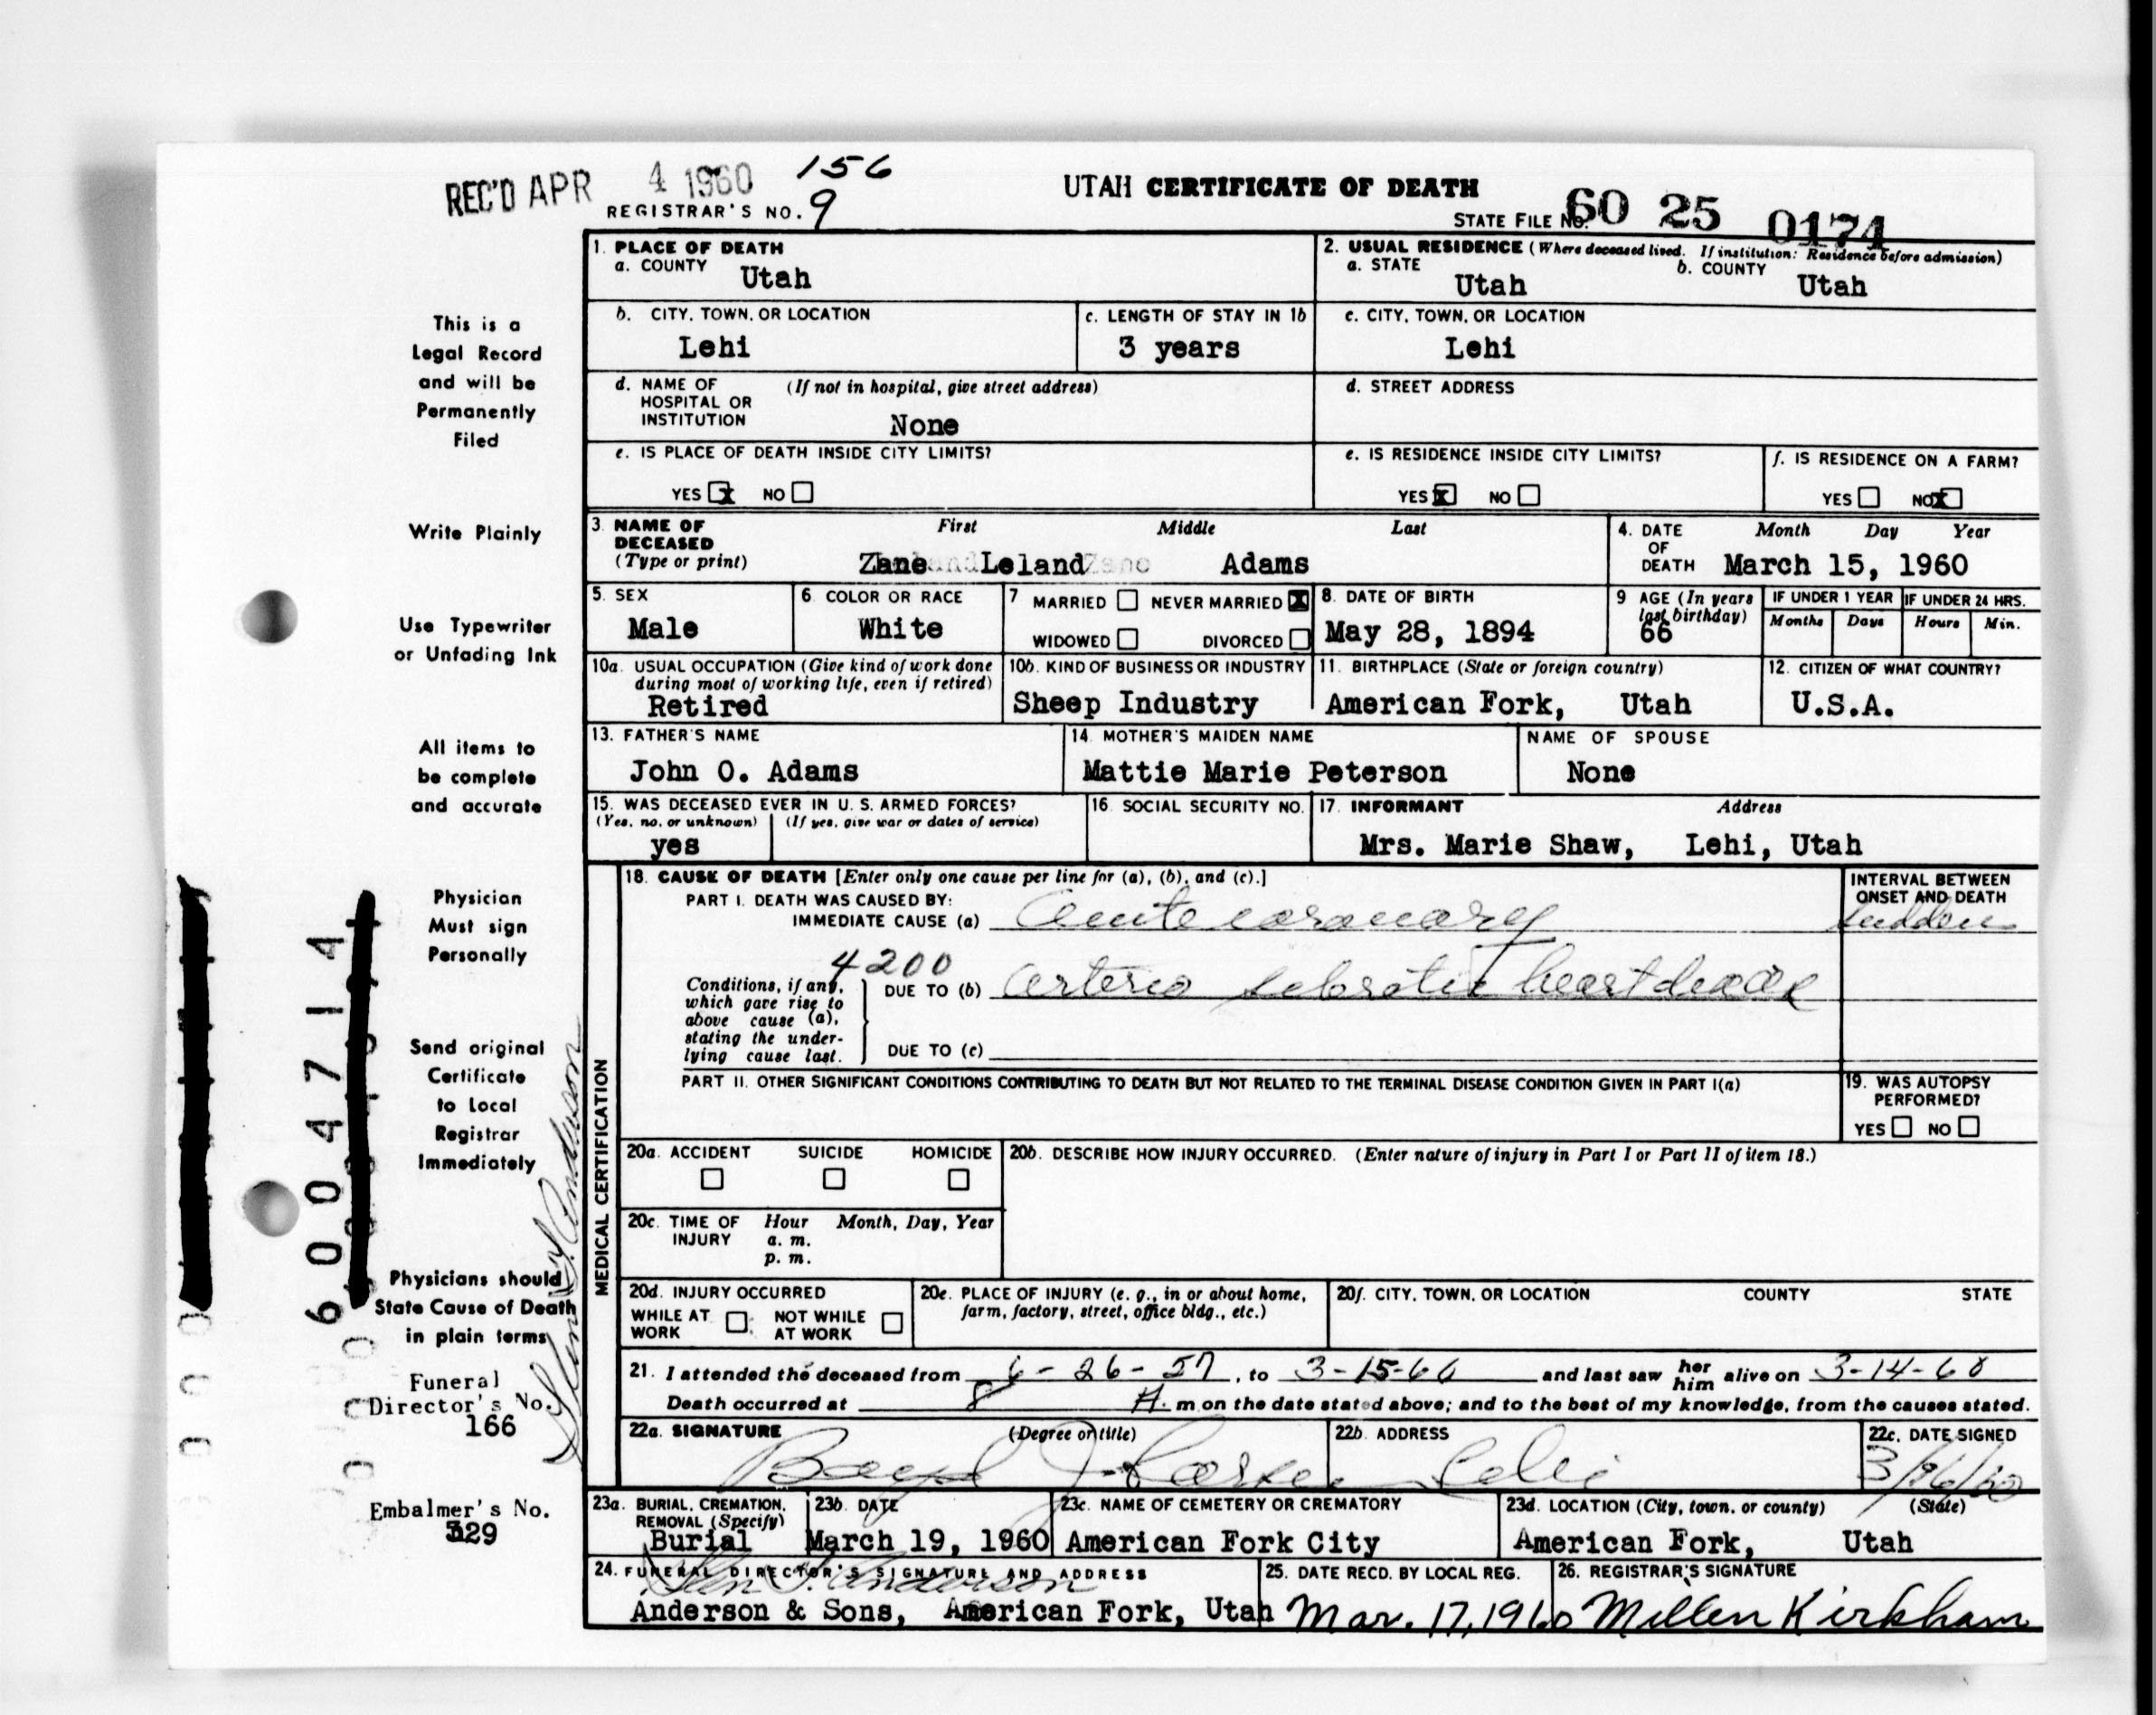 REC'D APR 4 1960 156
REGISTRAR'S NO. 9
UTAH CERTIFICATE OF DEATH
STATE FILE NO. 60 25 0174
1. PLACE OF DEATH
a. COUNTY Utah
2. USUAL RESIDENCE (Where deceased lived. If institution: Residence before admission)
a. STATE Utah b. COUNTY Utah
b. CITY, TOWN, OR LOCATION Lehi
c. LENGTH OF STAY IN 1b 3 years
c. CITY, TOWN, OR LOCATION Lehi
d. NAME OF HOSPITAL OR INSTITUTION (If not in hospital, give street address) None
d. STREET ADDRESS
e. IS PLACE OF DEATH INSIDE CITY LIMITS?
YES X NO
e. IS RESIDENCE INSIDE CITY LIMITS?
YES X NO
f. IS RESIDENCE ON A FARM?
YES NO X
3. NAME OF DECEASED (Type or print) First Middle Last
Zane Leland Adams
4. DATE OF DEATH Month Day Year
March 15, 1960
5. SEX Male
6. COLOR OR RACE White
7 MARRIED NEVER MARRIED X
WIDOWED DIVORCED
8. DATE OF BIRTH May 28, 1894
9 AGE (In years last birthday) 66
IF UNDER 1 YEAR Months Days
IF UNDER 24 HRS. Hours Min.
10a. USUAL OCCUPATION (Give kind of work done during most of working life, even if retired)
Retired
10b. KIND OF BUSINESS OR INDUSTRY
Sheep Industry
11. BIRTHPLACE (State or foreign country)
American Fork, Utah
12. CITIZEN OF WHAT COUNTRY?
U.S.A.
13. FATHER'S NAME
John O. Adams
14. MOTHER'S MAIDEN NAME
Mattie Marie Peterson
NAME OF SPOUSE
None
15. WAS DECEASED EVER IN U. S. ARMED FORCES?
(Yes, no, or unknown) (If yes, give war or dates of service)
yes
16. SOCIAL SECURITY NO.
17. INFORMANT Address
Mrs. Marie Shaw, Lehi, Utah
MEDICAL CERTIFICATION
18. CAUSE OF DEATH [Enter only one cause per line for (a), (b), and (c).]
PART I. DEATH WAS CAUSED BY:
IMMEDIATE CAUSE (a) Acute coronary
INTERVAL BETWEEN ONSET AND DEATH
sudden
4200
Conditions, if any, which gave rise to above cause (a), stating the underlying cause last.
DUE TO (b) Arterio sclerotic heart disease
DUE TO (c)
PART II. OTHER SIGNIFICANT CONDITIONS CONTRIBUTING TO DEATH BUT NOT RELATED TO THE TERMINAL DISEASE CONDITION GIVEN IN PART I(a)
19. WAS AUTOPSY PERFORMED?
YES NO
20a. ACCIDENT SUICIDE HOMICIDE
20b. DESCRIBE HOW INJURY OCCURRED. (Enter nature of injury in Part I or Part II of item 18.)
20c. TIME OF INJURY Hour Month, Day, Year
a. m.
p. m.
20d. INJURY OCCURRED
WHILE AT WORK NOT WHILE AT WORK
20e. PLACE OF INJURY (e. g., in or about home, farm, factory, street, office bldg., etc.)
20f. CITY, TOWN, OR LOCATION COUNTY STATE
21. I attended the deceased from 6-26-57, to 3-15-60 and last saw her him alive on 3-14-60
Death occurred at 8 A. m on the date stated above; and to the best of my knowledge, from the causes stated.
22a. SIGNATURE (Degree or title)
Boyd J. Larsen
22b. ADDRESS
Lehi
22c. DATE SIGNED
3/16/60
23a. BURIAL, CREMATION, REMOVAL (Specify)
Burial
23b. DATE
March 19, 1960
23c. NAME OF CEMETERY OR CREMATORY
American Fork City
23d. LOCATION (City, town, or county) (State)
American Fork, Utah
24. FUNERAL DIRECTOR'S SIGNATURE AND ADDRESS
Anderson
Anderson & Sons, American Fork, Utah
25. DATE RECD. BY LOCAL REG.
Mar. 17, 1960
26. REGISTRAR'S SIGNATURE
Millen Kirkham
This is a
Legal Record
and will be
Permanently
Filed
Write Plainly
Use Typewriter
or Unfading Ink
All items to
be complete
and accurate
Physician
Must sign
Personally
Send original
Certificate
to Local
Registrar
Immediately
Physicians should
State Cause of Death
in plain terms
Funeral
Director's No.
166
Embalmer's No.
329
6004714
Anderson